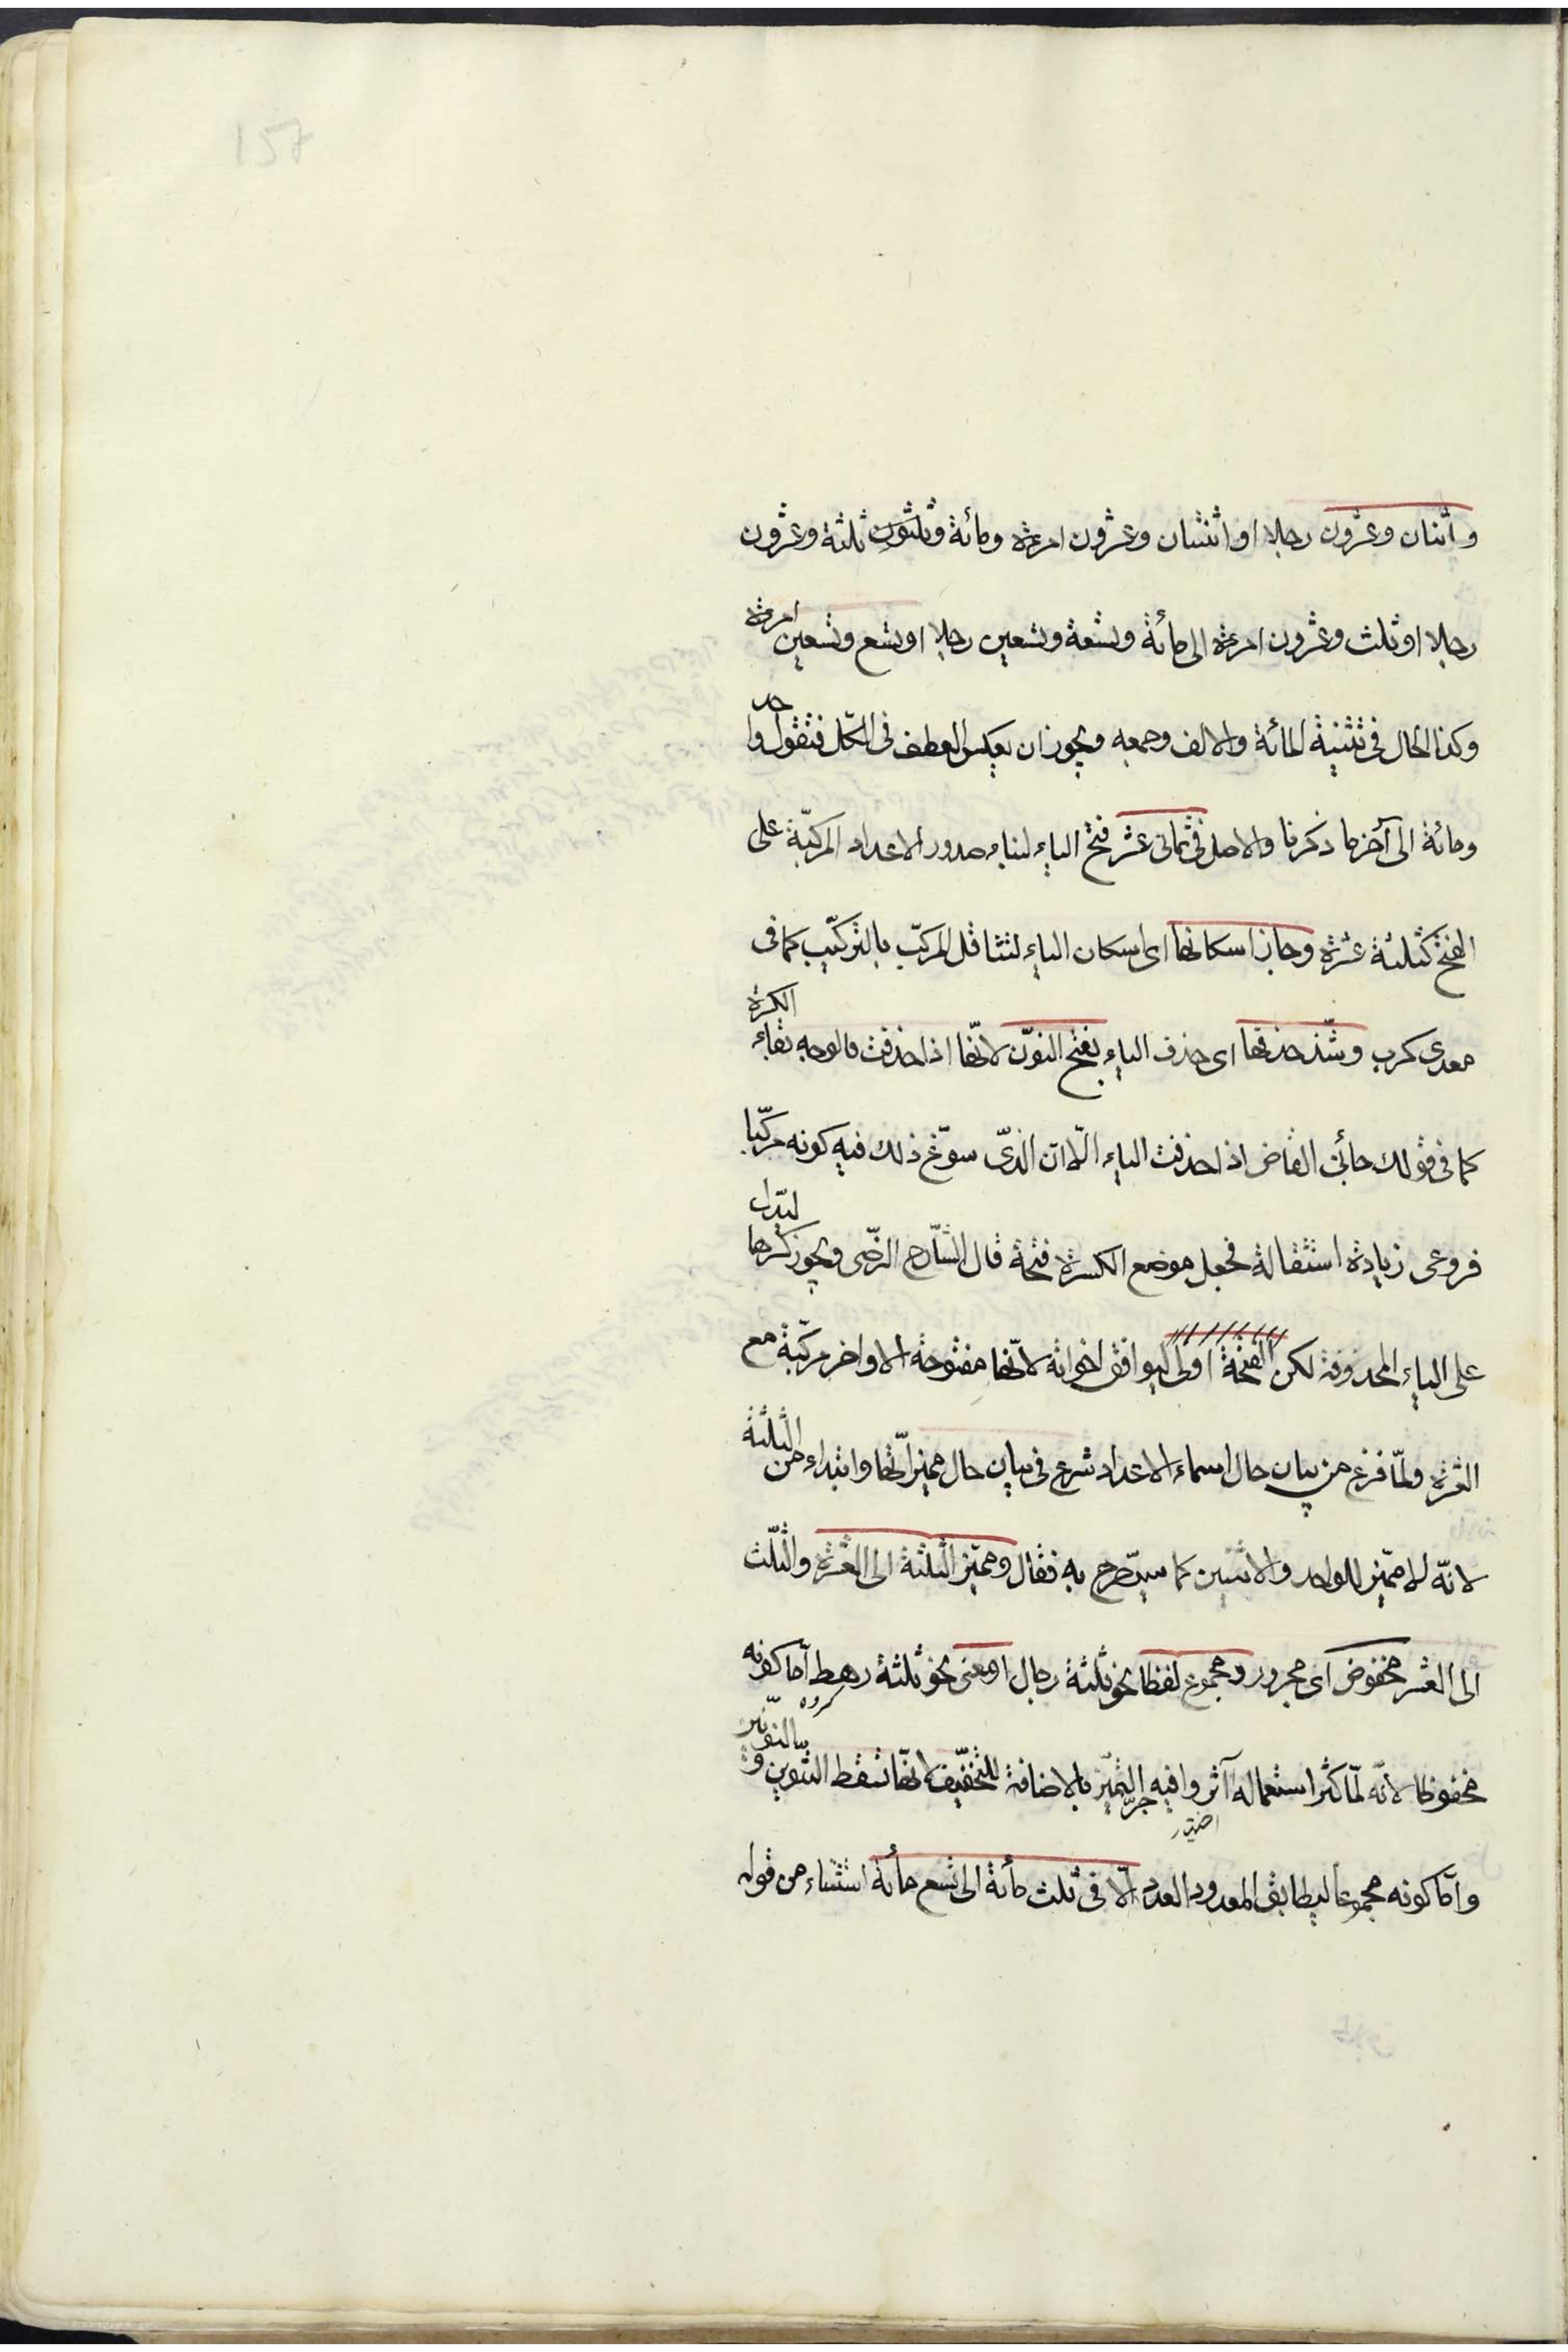 واثنان وعشرون رجلا او اثنتان وعشرون امرءة ومائة وثلثون ثلثة وعشرون
رجلا او ثلث وعشرون امرءة الى مائة وتسعة وتسعين رجلا او تسع وتسعين امرءة
وكذا الحال فى تثنية المائة والالف وجمعه ويجوز ان يعكس العطف فى الكل فتقول واحد
ومائة الى آخر ما ذكرنا والاصل فى ثمانى عشر فتح الياء لبناء صدور الاعداد المركبة على
الفتح كثلثة عشرة وجاز اسكانها اى اسكان الياء لتثاقل المركب بالتركيب كما فى
معدى كرب وشذ حذفها اى حذف الياء بفتح النون لانها اذا حذفت فالوجه بقاء الكسرة
كما فى قولك جائنى القاض اذا حذفت الياء الا ان الذى سوغ ذلك فيه كونه مركبا
فروعى زيادة استثقاله فجعل موضع الكسرة فتحة قال الشارح الرضى ويجوز كسرها ليدل
على الياء المحذوفة لكن الفتحة اولى ليوافق اخواته لانها مفتوحة الاواخر مركبة مع
العشرة ولما فرغ من بيان حال اسماء الاعداد شرع فى بيان حال مميزاتها وابتداء من الثلثة
لانه لا مميز للواحد والاثنين كما سيصرح به فقال ومميز الثلثة الى العشرة والثلث
الى العشر مخفوض اى مجرور ومجموع لفظا نحو ثلثة رجال او معنى نحو ثلثة رهط اما كونه
كروه
مخفوضا لانه لما كثر استعماله آثروا فيه جر التميز بالاضافة للتخفيف لانها تسقط التنوين و
اختير
واما كونه مجموعا ليطابق المعدود العدد الا فى ثلث مائة الى تسع مائة استثناء من قوله